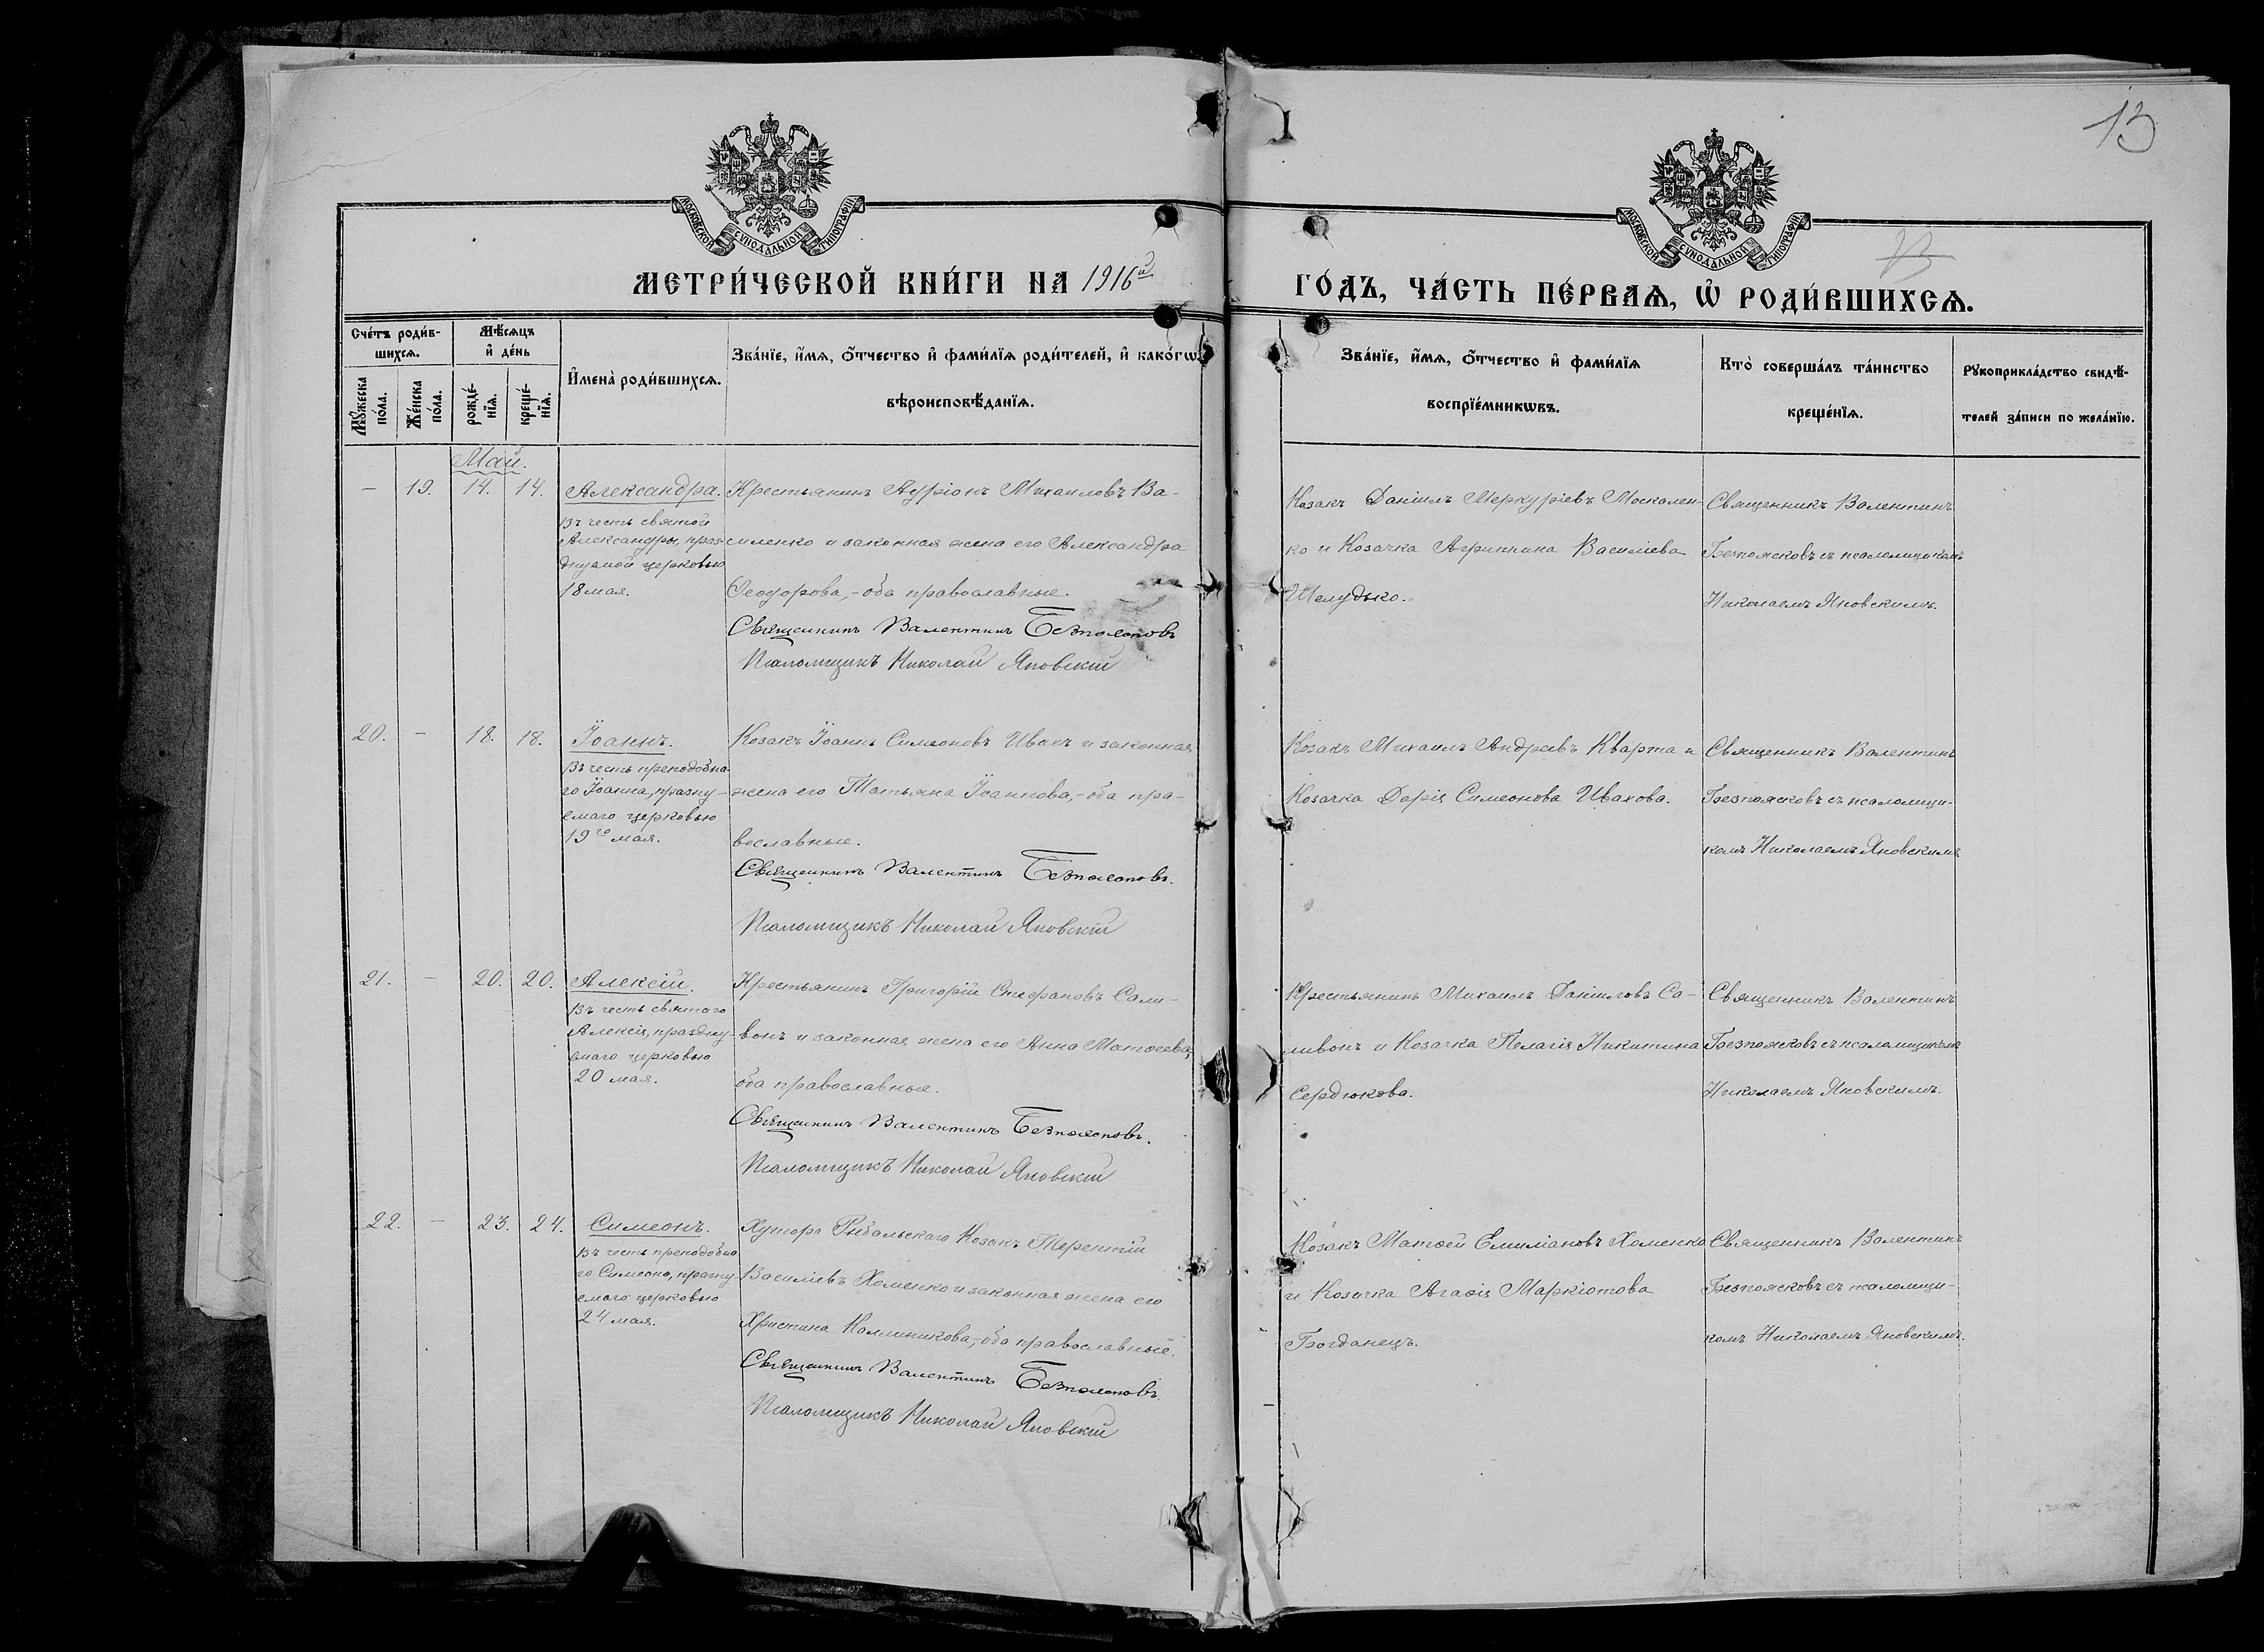 13
МОСКОВСКОЙ СѴНОДАЛЬНОЙ ТИПОГРАФІИ
МОСКОВСКОЙ СѴНОДАЛЬНОЙ ТИПОГРАФІИ
МЕТРИ́ЧЕСКОЙ КНИ́ГИ НА 1916й
ГО́ДЪ, ЧА́СТЬ ПЕ́РВАѦ, Ѽ РОДИ́ВШИХСѦ.
Сче́тъ роди́в-
шихсѧ.
Мѣ́сѧцъ
и҆ де́нь
Мꙋ́жеска
по́ла.
Же́нска
по́ла.
рожде́-
нїѧ.
креще́-
нїѧ.
И҆мена̀ роди́вшихсѧ.
Зва́нїе, и҆́мѧ, ѻ҆́тчество и҆ фами́лїѧ роди́телей, и҆ како́гѡ
вѣроисповѣ́данїѧ.
Зва́нїе, и҆́мѧ, ѻ҆́тчество и҆ фами́лїѧ
воспрїе́мникѡвъ.
Кто̀ соверша́лъ та́инство
креще́нїѧ.
Рꙋкоприкла́дство свидѣ́-
телей за́писи по жела́нїю.
Май.
— 19. 14. 14.
Александра.
Въ честь святой
Александры, праз-
днуемой церковью
18 мая.
Крестьянинъ Ауріонъ Михаиловъ Ва-
силенко и законная жена его Александра
Ѳеодорова,- оба православные.
Священникъ Валентинъ Безпоясковъ
Псаломщикъ Николай Яновскій
Козакъ Даніилъ Меркуріевъ Москален-
ко и Козачка Агриппина Василіева
Шелудько.
Священникъ Валентинъ
Безпоясковъ съ псаломщикомъ
Николаемъ Яновскимъ.
20. — 18. 18.
Іоаннъ.
Въ честь преподобна-
го Іоанна, празну-
емаго церковью
19го мая.
Козакъ Іоаннъ Симеоновъ Ивахъ и законная
жена его Татьяна Іоаннова,- оба пра-
вославные.
Священникъ Валентинъ Безпоясковъ.
Псаломщикъ Николай Яновскій
Козакъ Михаилъ Андреевъ Кварта и
Козачка Дарія Симеонова Ивахова.
Священникъ Валентинъ
Безпоясковъ съ псаломщи-
комъ Николаемъ Яновскимъ
21. — 20. 20.
Алексій.
Въ честь святаго
Алексія, праздну-
емаго церковью
20 мая.
Крестьянинъ Григорій Стефановъ Сали-
вонъ и законная жена его Анна Матѳеева,
оба православные.
Священникъ Валентинъ Безпоясковъ.
Псаломщикъ Николай Яновскій
Крестьянинъ Михаилъ Даніиловъ Са-
ливонъ и Козачка Пелагія Никитина
Сердюкова.
Священникъ Валентинъ
Безпоясковъ съ псаломщикомъ
Николаемъ Яновскимъ.
22. — 23. 24.
Симеонъ.
Въ честь преподобна
го Симеона, празну-
емаго церковью
24 мая.
Хутора Рибальскаго Козакъ Терентій
Василіевъ Хоменко и законная жена его
Христина Каллиникова,- оба православные.
Священникъ Валентинъ Безпоясковъ.
Псаломщикъ Николай Яновскій
Козакъ Матѳей Емиліановъ Хоменко
и Козачка Агаѳія Маркіотова
Богданецъ.
Священникъ Валентинъ
Безпоясковъ съ псаломщи-
комъ Николаемъ Яновскимъ.